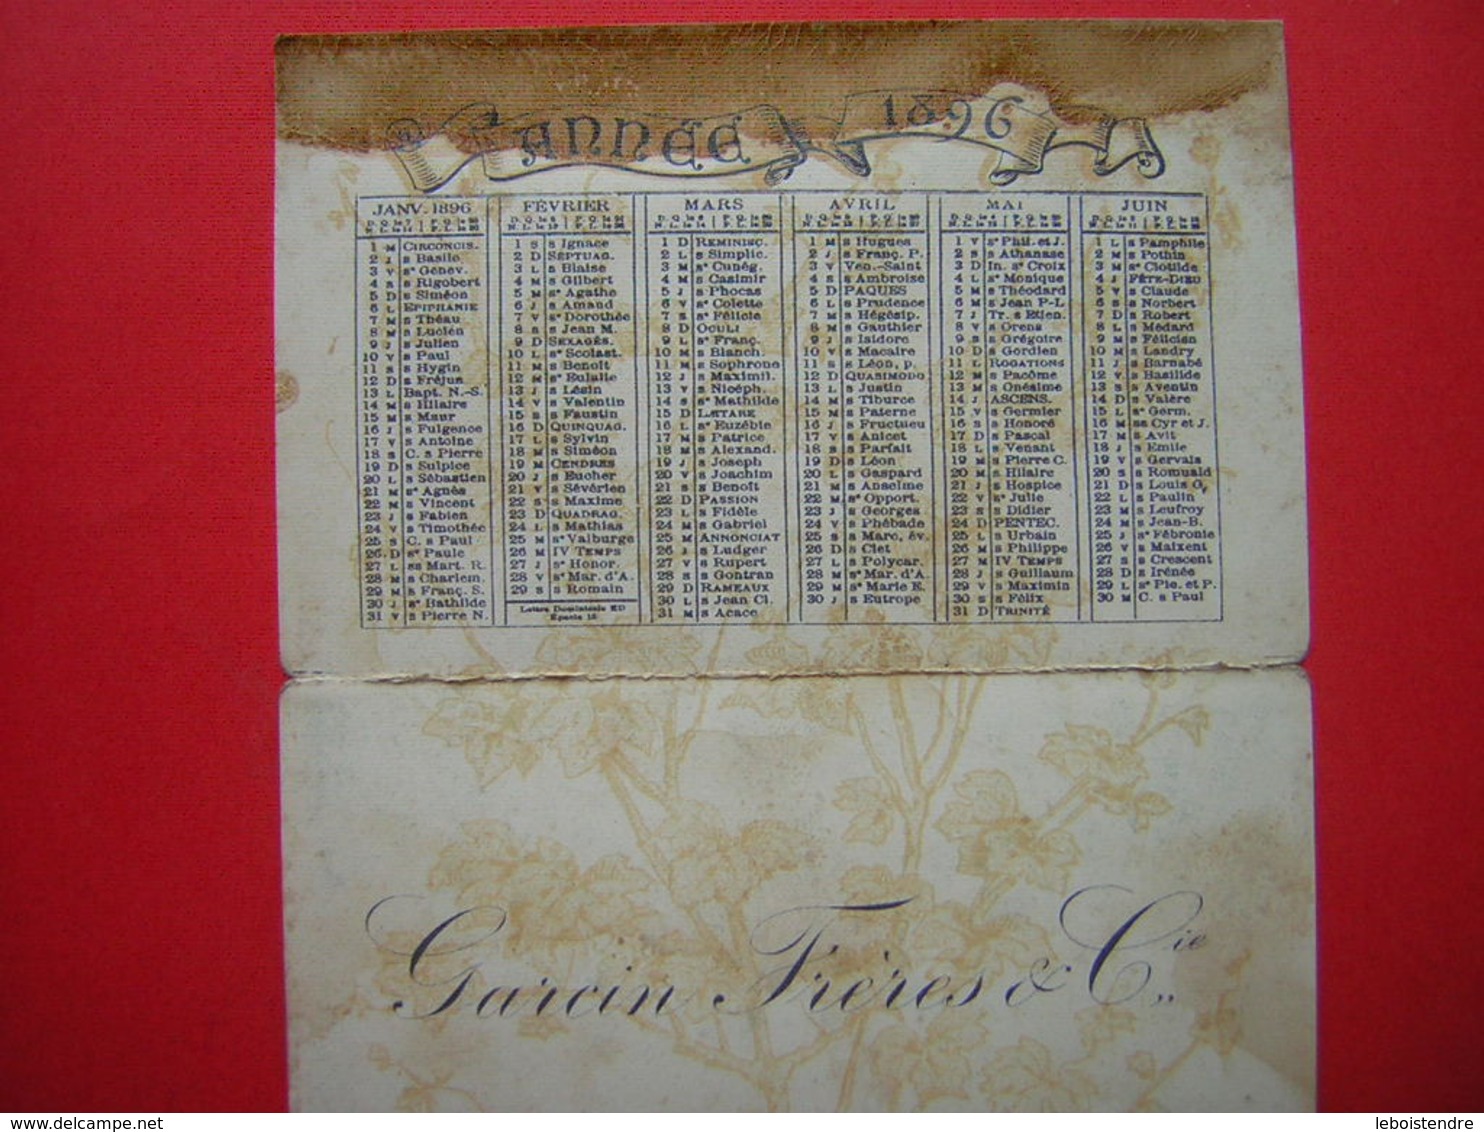 ANNEE 1896
JANV. 1896
1 M CIRCONCIS.
2 J s Basile
3 V se Genev.
4 S s Rigobert
5 D s Siméon
6 L EPIPHANIE
7 M s Théau
8 M s Lucien
9 J s Julien
10 V s Paul
11 S s Hygin
12 D s Fréjus
13 L Bapt. N.-S.
14 M s Hilaire
15 M s Maur
16 J s Fulgence
17 V s Antoine
18 S C. s Pierre
19 D s Sulpice
20 L s Sébastien
21 M se Agnès
22 M s Vincent
23 J s Fabien
24 V s Timothée
25 S C. s Paul
26 D se Paule
27 L ss Mart. R.
28 M s Charlem.
29 M s Franç. S.
30 J se Bathilde
31 V s Pierre N.
FÉVRIER
1 S s Ignace
2 D SEPTUAG.
3 L s Blaise
4 M s Gilbert
5 M se Agathe
6 J s Amand
7 V se Dorothée
8 S s Jean M.
9 D SEXAGÉS.
10 L se Scolast.
11 M s Benoît
12 M se Eulalie
13 J s Lésin
14 V s Valentin
15 S s Faustin
16 D QUINQUAG.
17 L s Sylvin
18 M s Siméon
19 M CENDRES
20 J s Eucher
21 V s Sévérien
22 S s Maxime
23 D QUADRAG.
24 L s Mathias
25 M se Valburge
26 M IV TEMPS
27 J se Honor.
28 V se Mar. d'A.
29 S s Romain
Lettre Dominicale ED
MARS
1 D REMINISC.
2 L s Simplic.
3 M se Cunég.
4 M s Casimir
5 J s Phocas
6 V se Colette
7 S se Félicie
8 D OCULI
9 L se Franç.
10 M s Blanch.
11 M s Sophrone
12 J s Maximil.
13 V s Nicéph.
14 S se Mathilde
15 D LÆTARE
16 L se Euzébie
17 M s Patrice
18 M s Alexand.
19 J s Joseph
20 V s Joachim
21 S s Benoît
22 D PASSION
23 L s Fidèle
24 M s Gabriel
25 M ANNONCIAT
26 J s Ludger
27 V s Rupert
28 S s Gontran
29 D RAMEAUX
30 L s Jean Cl.
31 M s Acace
AVRIL
1 M s Hugues
2 J s Franç. P.
3 V Ven.-Saint
4 S s Ambroise
5 D PAQUES
6 L s Prudence
7 M s Hégésip.
8 M s Gauthier
9 J s Isidore
10 V s Macaire
11 S s Léon, p.
12 D QUASIMODO
13 L s Justin
14 M s Tiburce
15 M s Paterne
16 J s Fructueu
17 V s Anicet
18 S s Parfait
19 D s Léon
20 L s Gaspard
21 M s Anselme
22 M se Opport.
23 J s Georges
24 V s Phébade
25 S s Marc, év.
26 D s Clet
27 L s Polycar.
28 M se Mar. d'A.
29 M se Marie E.
30 J s Eutrope
MAI
1 V ss Phil. et J.
2 S s Athanase
3 D In. se Croix
4 L se Monique
5 M s Théodard
6 M s Jean P-L
7 J Tr. s Etien.
8 V s Orens
9 S s Grégoire
10 D s Gordien
11 L ROGATIONS
12 M s Pacôme
13 M s Onésime
14 J ASCENS.
15 V s Germier
16 S s Honoré
17 D s Pascal
18 L s Venant
19 M s Pierre C.
20 M s Hilaire
21 J s Hospice
22 V se Julie
23 S s Didier
24 D PENTEC.
25 L s Urbain
26 M s Philippe
27 M IV TEMPS
28 J s Guillaum
29 V s Maximin
30 S s Félix
31 D TRINITÉ
JUIN
1 L s Pamphile
2 M s Pothin
3 M se Clotilde
4 J FÊTE-DIEU
5 V s Claude
6 S s Norbert
7 D s Robert
8 L s Médard
9 M s Félicien
10 M s Landry
11 J s Barnabé
12 V s Basilide
13 S s Aventin
14 D s Valère
15 L se Germ.
16 M ss Cyr et J.
17 M s Avit
18 J s Emile
19 V s Gervais
20 S s Romuald
21 D s Louis G.
22 L s Paulin
23 M s Leufroy
24 M s Jean-B.
25 J se Fébronie
26 V s Maixent
27 S s Crescent
28 D s Irénée
29 L ss Pie. et P.
30 M C. s Paul
Garcin Frères & Cie
leboistendre